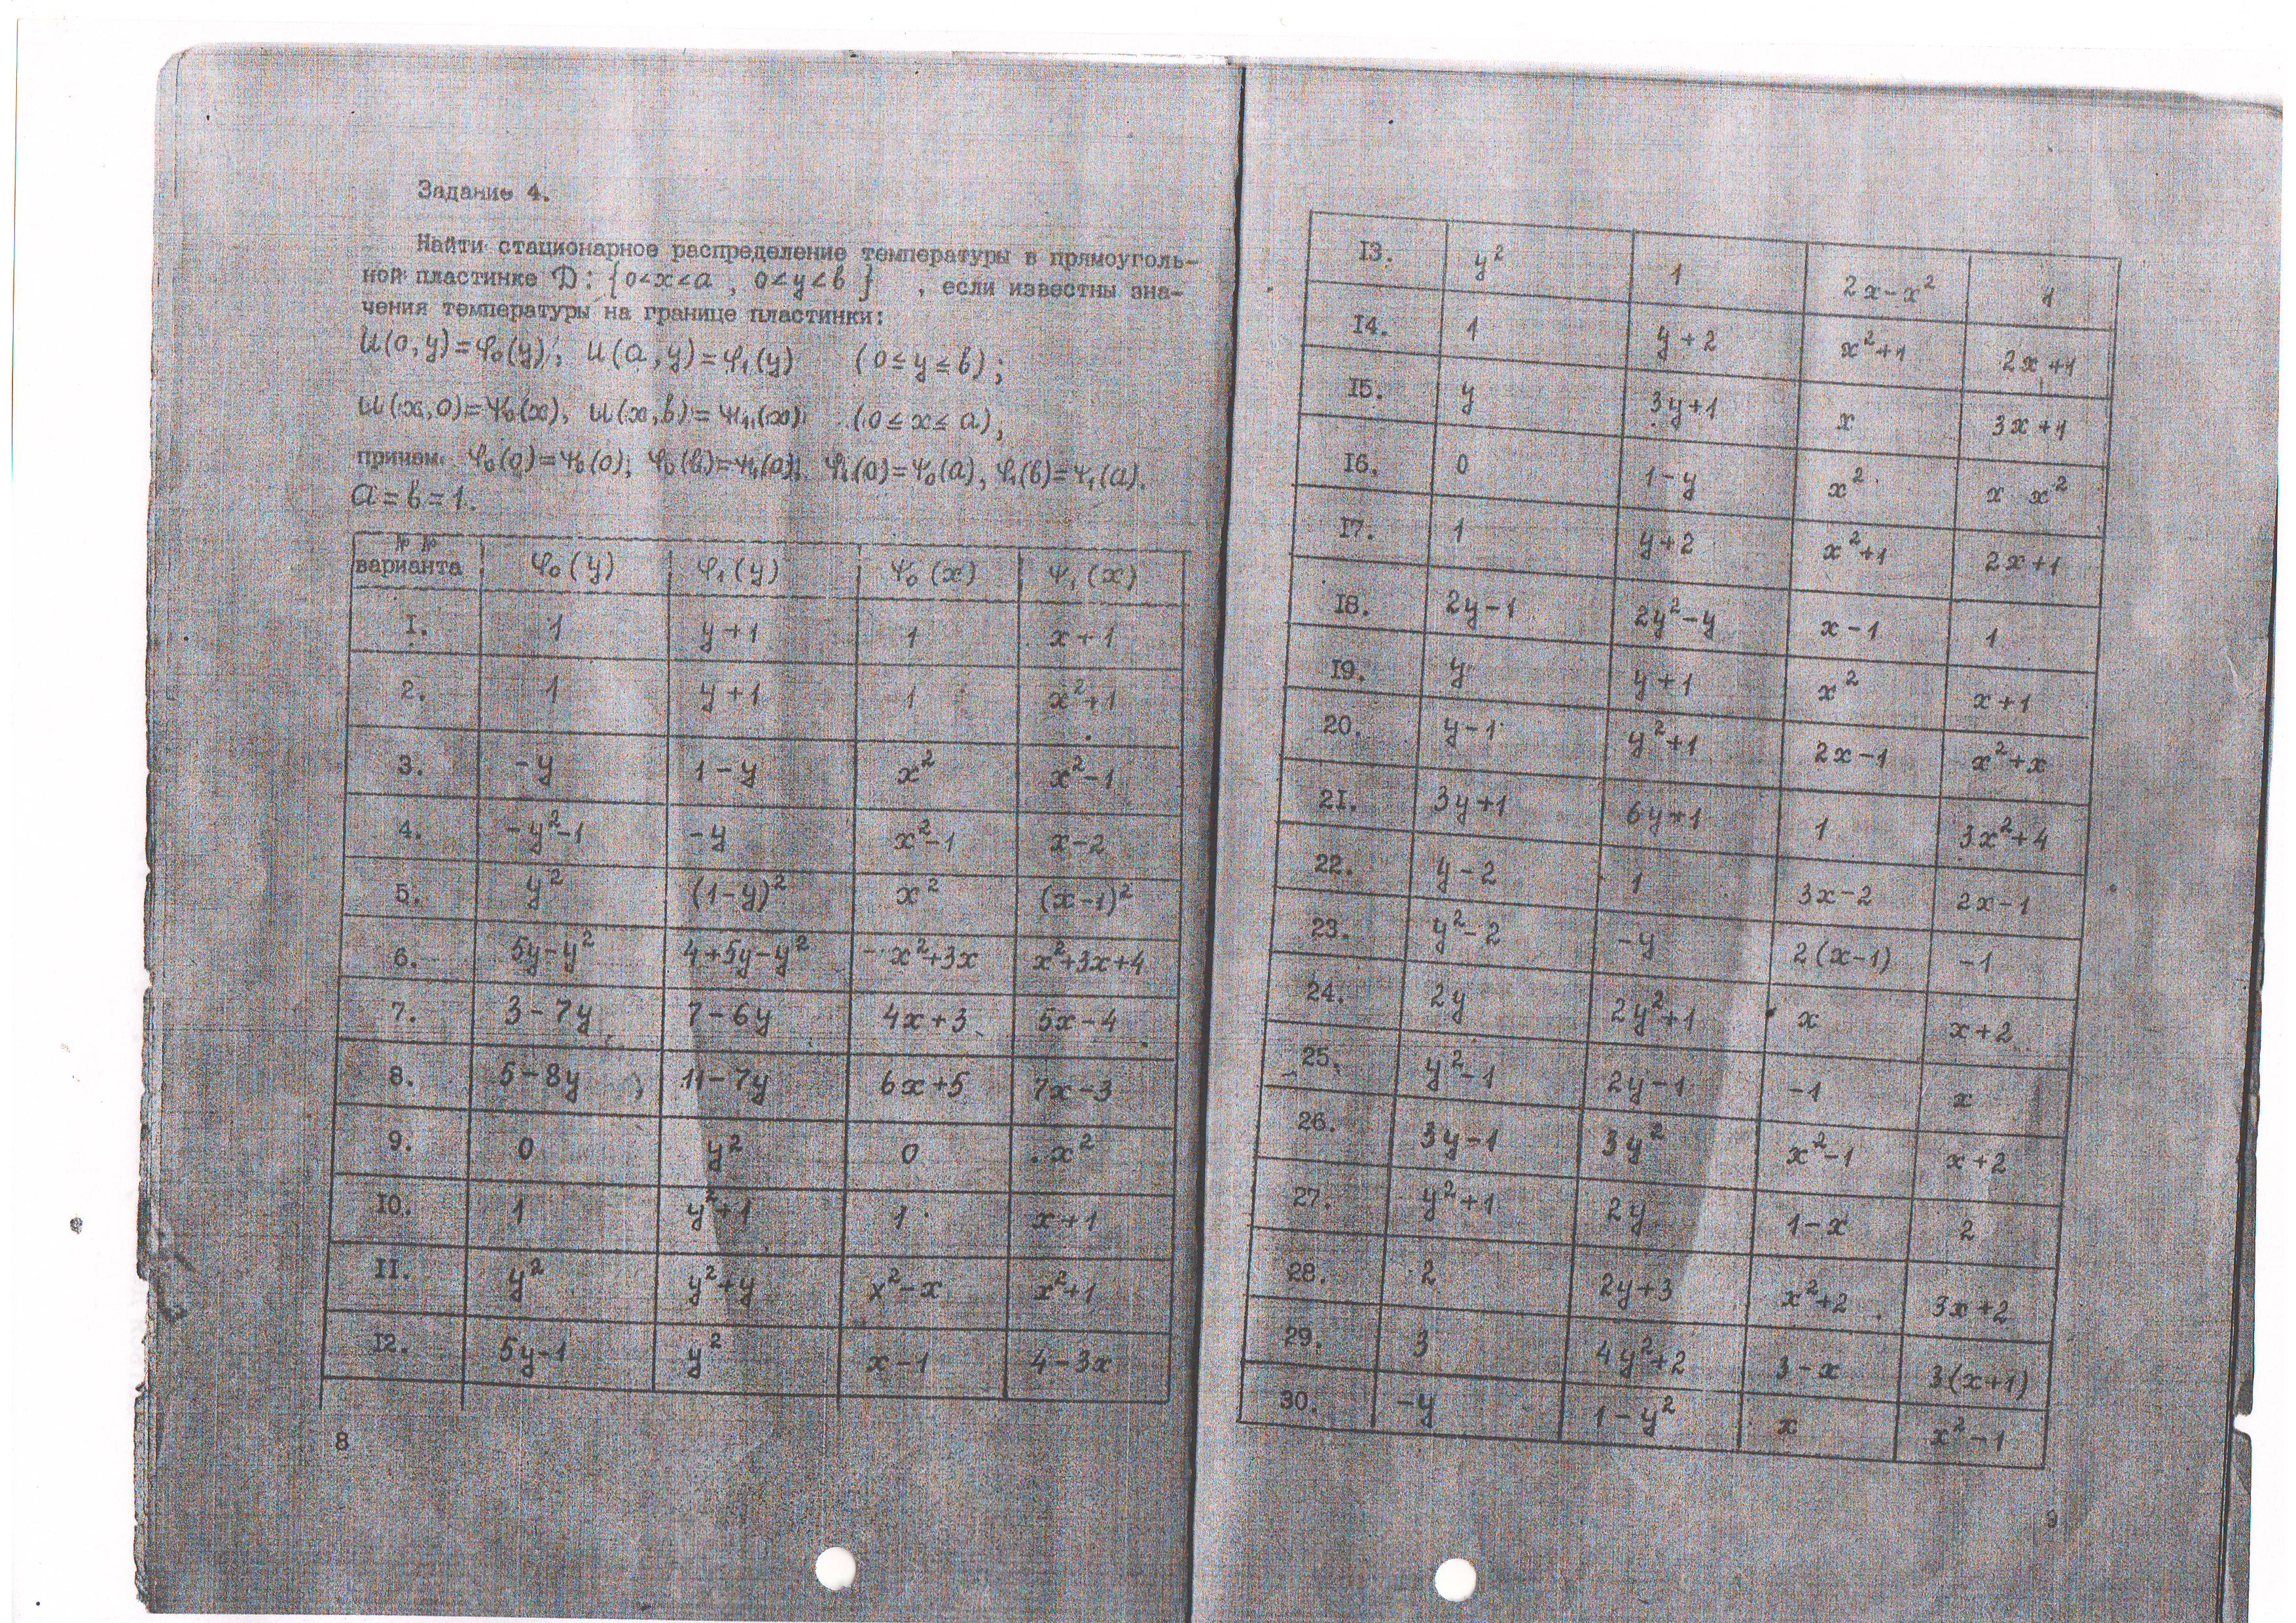 Задание 4.
Найти стационарное распределение температуры в прямоуголь-
ной пластинке D: {0<x<a, 0<y<b}, если известны зна-
чения температуры на границе пластинки:
u(0,y)=φ₀(y); u(a,y)=φ₁(y) (0≤y≤b);
u(x,0)=ψ₀(x), u(x,b)=ψ₁(x) (0≤x≤a),
причем φ₀(0)=ψ₀(0); φ₀(b)=ψ₁(a); φ₁(0)=ψ₀(a), φ₁(b)=ψ₁(a).
a=b=1.
№ №
варианта φ₀(y) φ₁(y) ψ₀(x) ψ₁(x)
1. 1 y+1 1 x+1
2. 1 y+1 1 x²+1
3. -y 1-y x² x²-1
4. -y²-1 -y x²-1 x-2
5. y² (1-y)² x² (x-1)²
6. 5y-y² 4+5y-y² x²+3x x²+3x+4
7. 3-7y 7-6y 4x+3 5x-4
8. 5-8y 11-7y 6x+5 7x-3
9. 0 y² 0 x²
10. 1 y²+1 1 x+1
11. y² y²+y x²-x x²+1
12. 5y-1 y² x-1 4-3x
8
13. y² 1 2x-x² 1
14. 1 y+2 x²+1 2x+1
15. y 3y+1 x 3x+1
16. 0 1-y x² x x²
17. 1 y+2 x²+1 2x+1
18. 2y-1 2y²-y x-1 1
19. y y+1 x² x+1
20. y-1 y²+1 2x-1 x²+x
21. 3y+1 6y+1 1 3x²+4
22. y-2 1 3x-2 2x-1
23. y²-2 -y 2(x-1) -1
24. 2y 2y²+1 x x+2
25. y²-1 2y-1 -1 x
26. 3y-1 3y² x²-1 x+2
27. y²+1 2y 1-x 2
28. 2 2y+3 x²+2 3x+2
29. 3 4y²+2 3-x 3(x+1)
30. -y 1-y² x x²-1
9